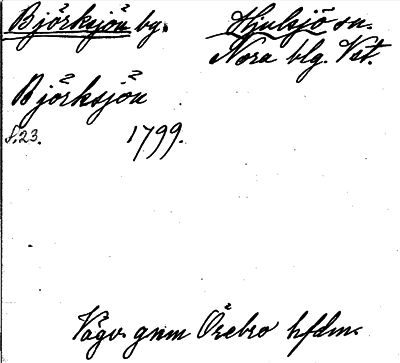 Björksjön bg.
Hjulsjö sn.
Nora blg. Vst.
Björksjön
s. 23. 1799.
Vägv. gnm Örebro hfdm.